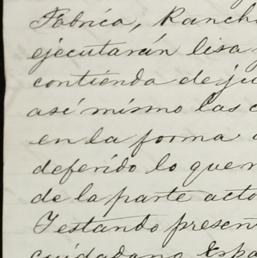 Fábrica, Ranch
ejecutarán lisa
contienda de ju
así mismo las c
en la forma
deferido lo que
de la parte acto
Testando presen
ciudadano Espa